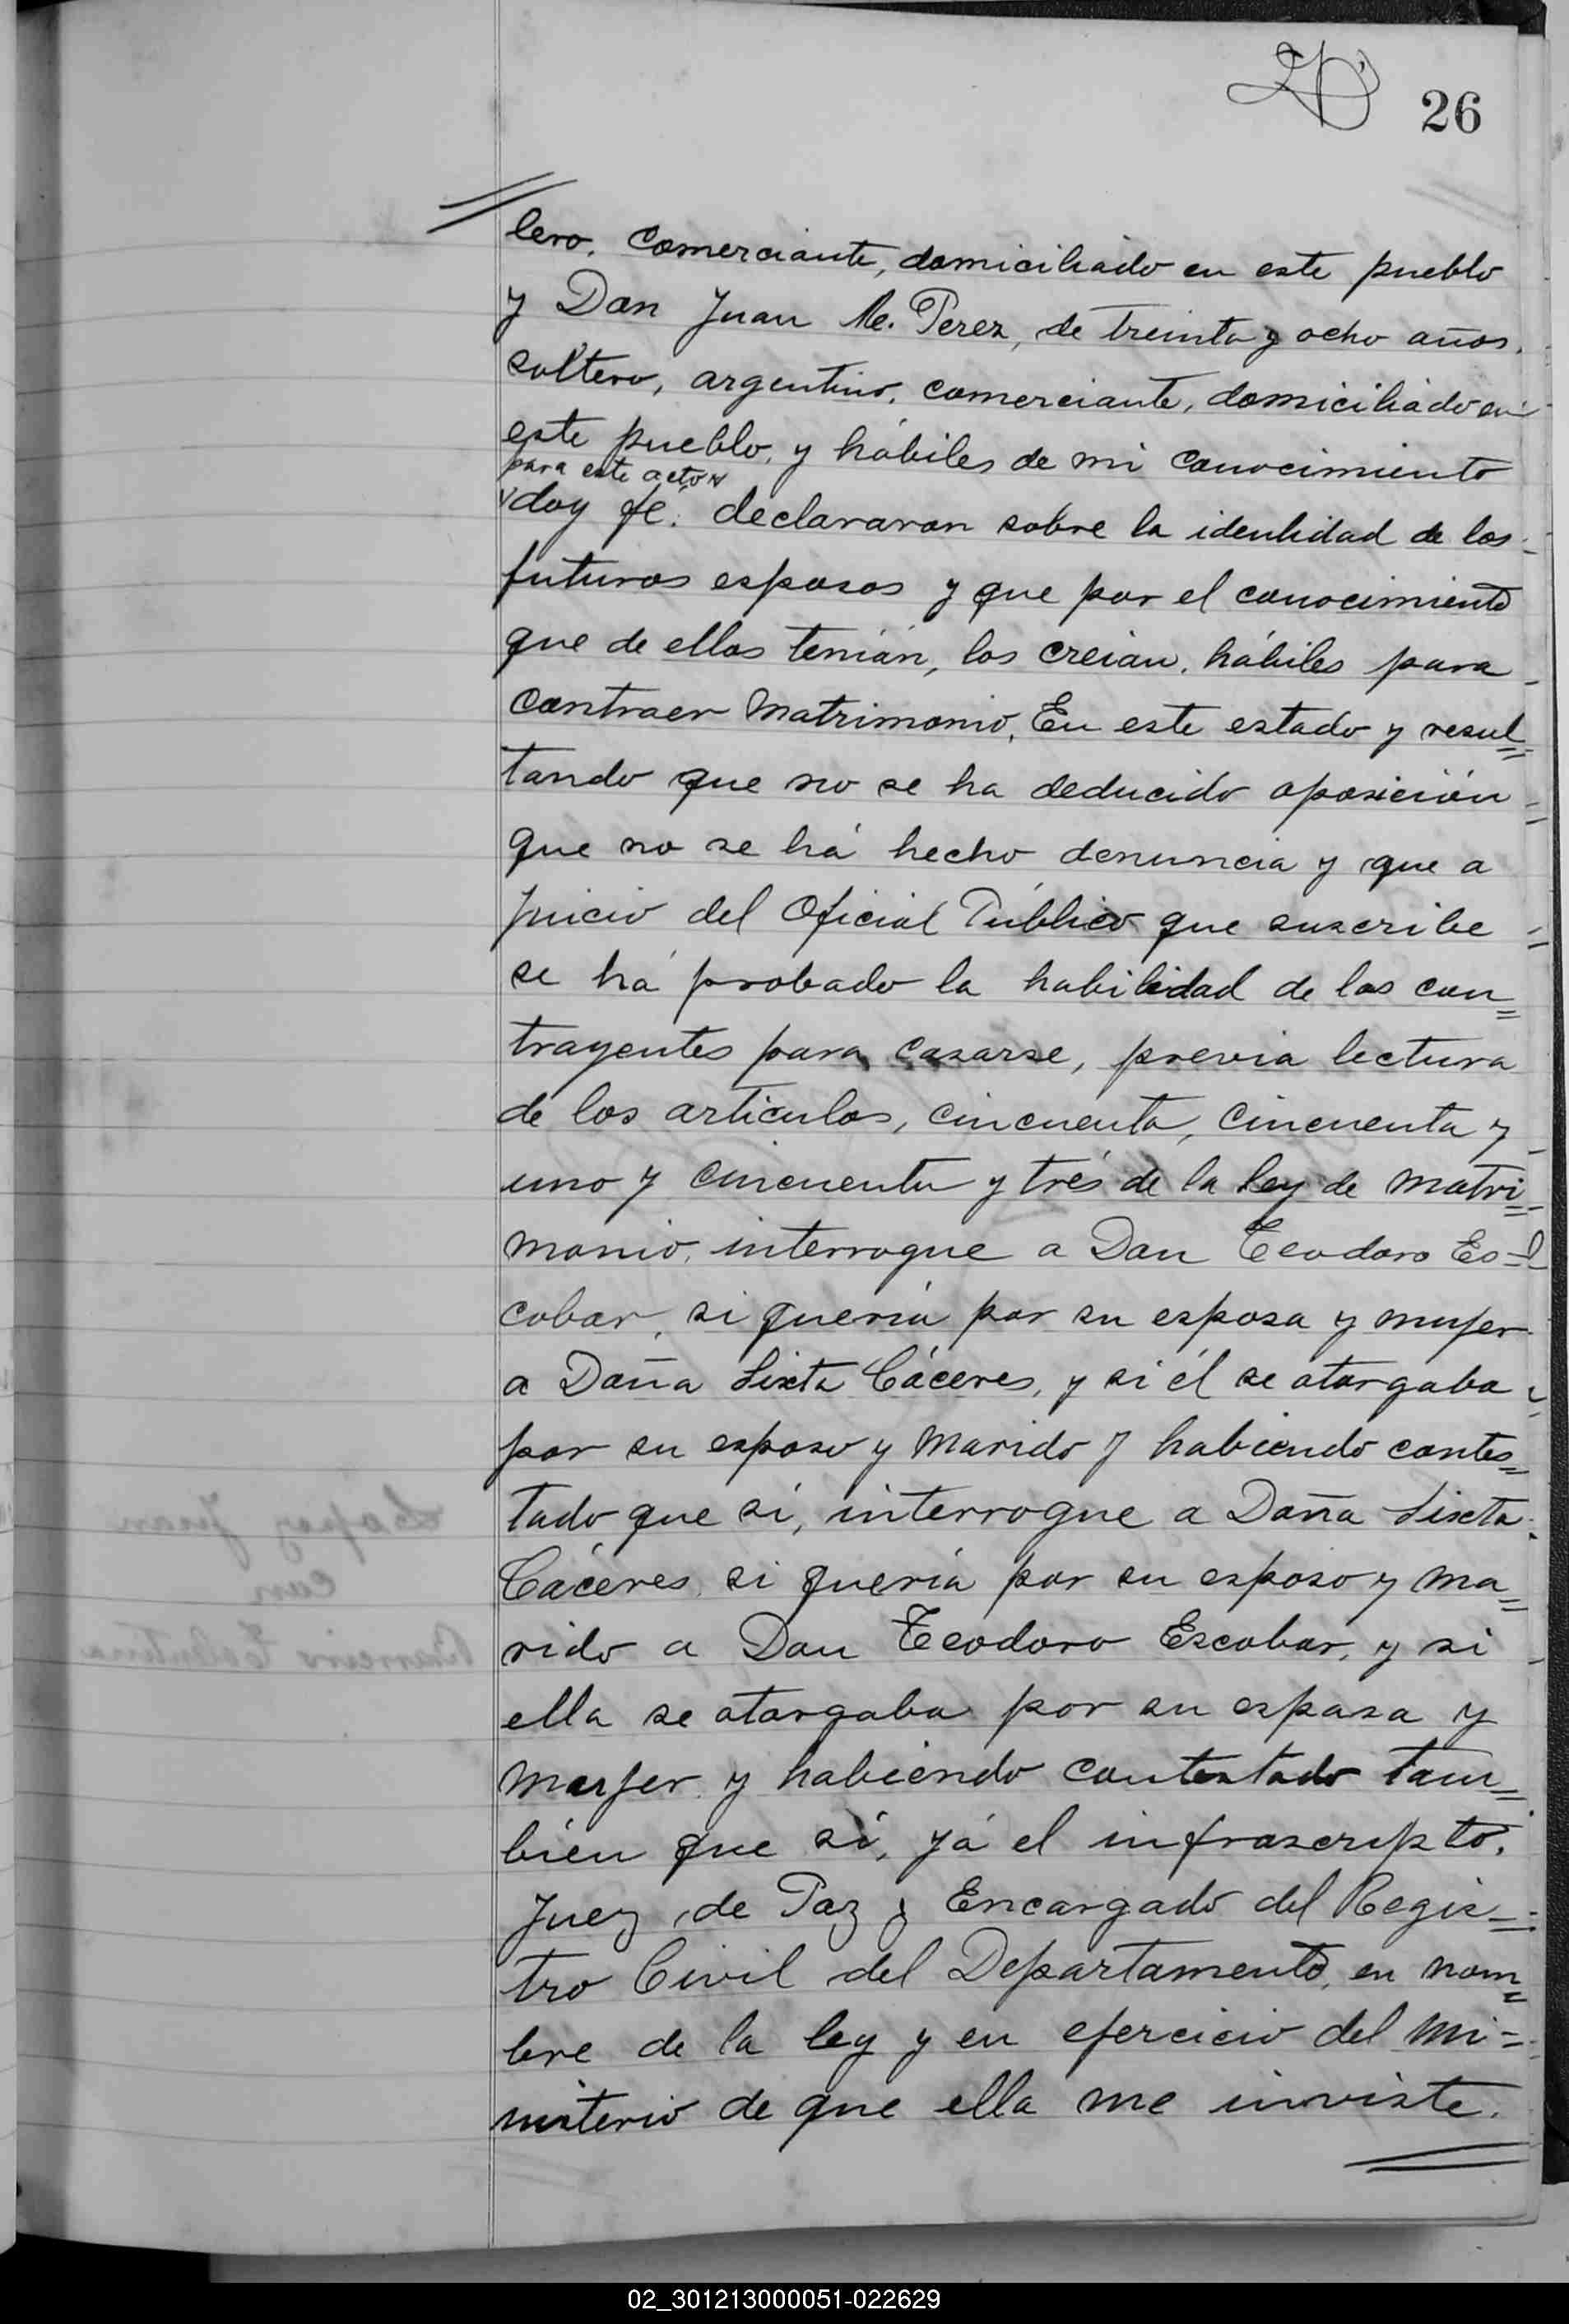 26
lero, comerciante, domiciliado en este pueblo
y Don Juan M. Perez, de treinta y ocho años,
soltero, argentino, comerciante, domiciliado en
este pueblo, y hábiles de mi conocimiento
para este acto
doy fé: declararon sobre la identidad de los
futuros esposos y que por el conocimiento
que de ellos tenián, los creian, hábiles para
contraer Matrimonio, En este estado y resul=
tando que no se ha deducido oposición
que no se há hecho denuncia y que a
juicio del Oficial Público que suscribe
se há probado la habilidad de los con=
trayentes para casarse, previa lectura
de los articulos, cincuenta, cincuenta y
uno y cincuenta y trés de la ley de Matri=
monio, interrogue a Don Teodoro Es=
cobar, si queria por su esposa y mujer
a Doña Sixta Cáceres, y si él se otorgaba
por su esposo y Marido y habiendo contes=
tado que sí, interrogue a Doña Sixta
Cáceres, si queria por su esposo y ma=
rido a Don Teodoro Escobar, y si
ella se otorgaba por su esposa y
mujer y habiendo contestado tam=
bién que sí, yó el infrascripto,
Juez de Paz y Encargado del Regis=
tro Civil del Departamento, en nom=
bre de la ley y en ejercicio del Mi=
nisterio de que ella me inviste.
02_301213000051-022629